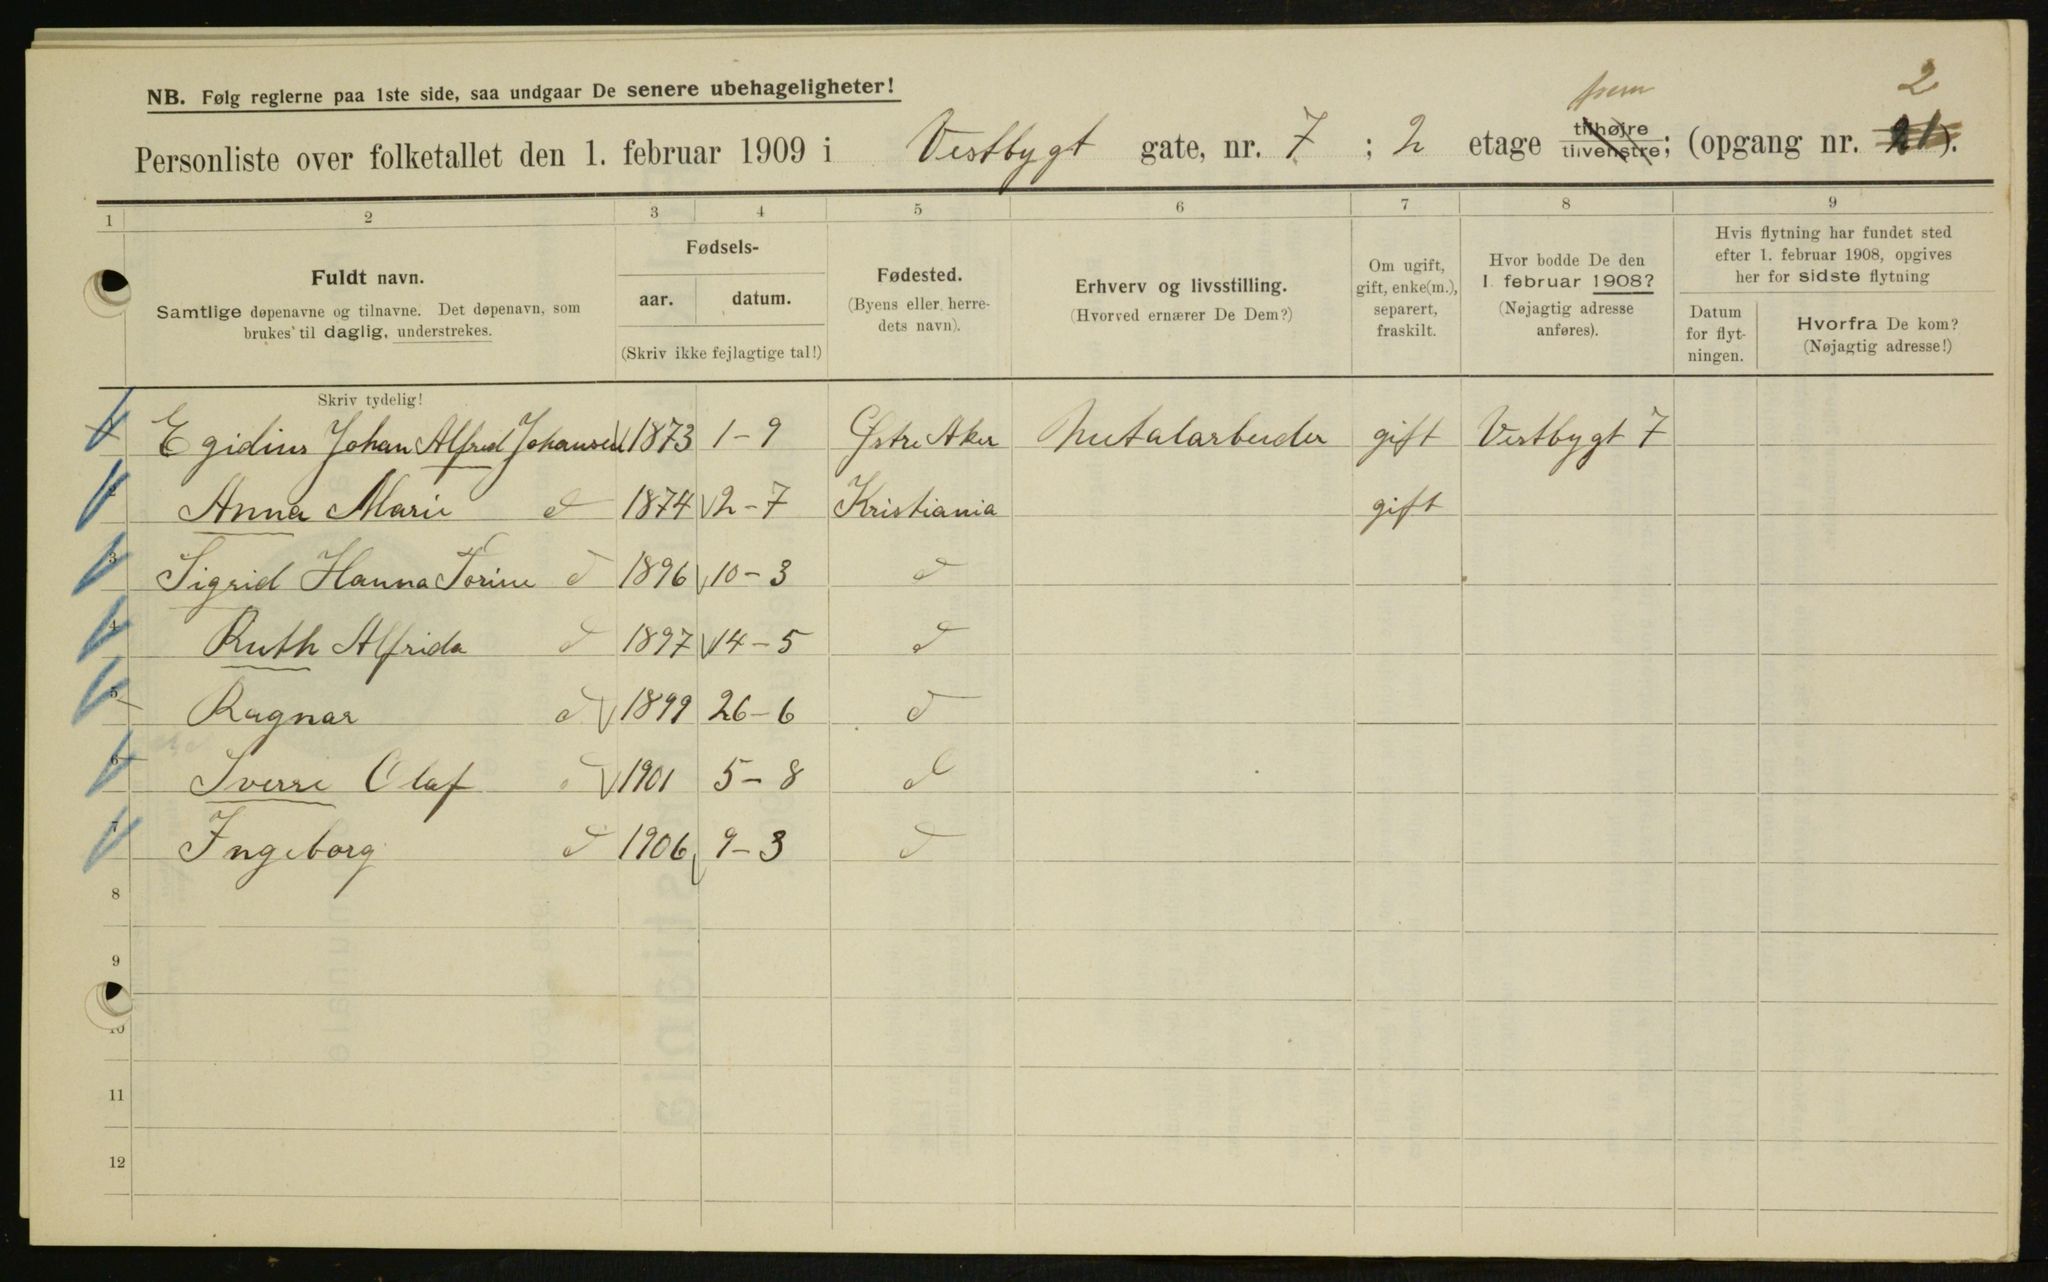 NB. Følg reglerne paa 1ste side, saa undgaar De senere ubehageligheter!
frem
2
Personliste over folketallet den 1. februar 1909 i Vestbygt gate, nr. 7 ; 2 etage tilhøjre tilvenstre; (opgang nr. 21).
1 2 3 4 5 6 7 8 9
Fuldt navn.
Samtlige døpenavne og tilnavne. Det døpenavn, som
brukes til daglig, understrekes.
Fødsels-
aar. datum.
(Skriv ikke fejlagtige tal!)
Fødested.
(Byens eller herre-
dets navn).
Erhverv og livsstilling.
(Hvorved ernærer De Dem?)
Om ugift,
gift, enke(m.),
separert,
fraskilt.
Hvor bodde De den
1. februar 1908?
(Nøjagtig adresse
anføres).
Hvis flytning har fundet sted
efter 1. februar 1908, opgives
her for sidste flytning
Datum
for flyt-
ningen.
Hvorfra De kom?
(Nøjagtig adresse!)
Skriv tydelig!
1 Egidius Johan Alfred Johansen 1873 1-9 Østre Aker Metalarbeider gift Vestbygt 7
2 Anna Marie d 1874 2-7 Kristiania gift
3 Sigrid Hanna Torine d 1896 10-3 d
4 Ruth Alfrida d 1897 14-5 d
5 Ragnar d 1899 26-6 d
6 Sverre Olaf d 1901 5-8 d
7 Ingeborg d 1906 9-3 d
8
9
10
11
12